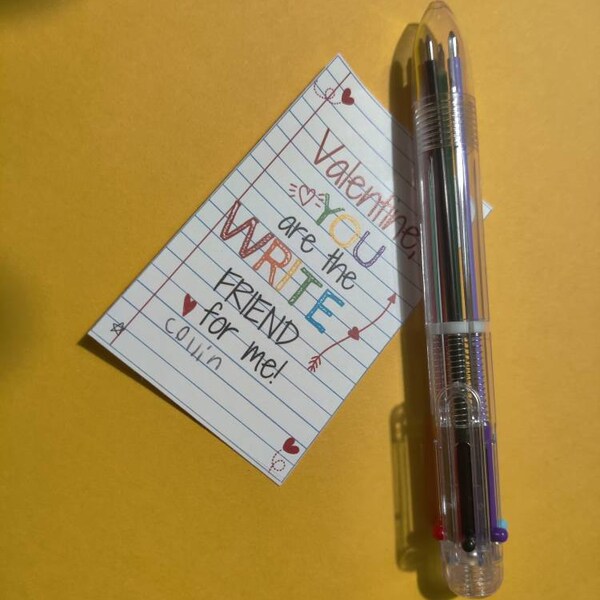 Valentine,
YOU
are the
WRITE
FRIEND
for me!